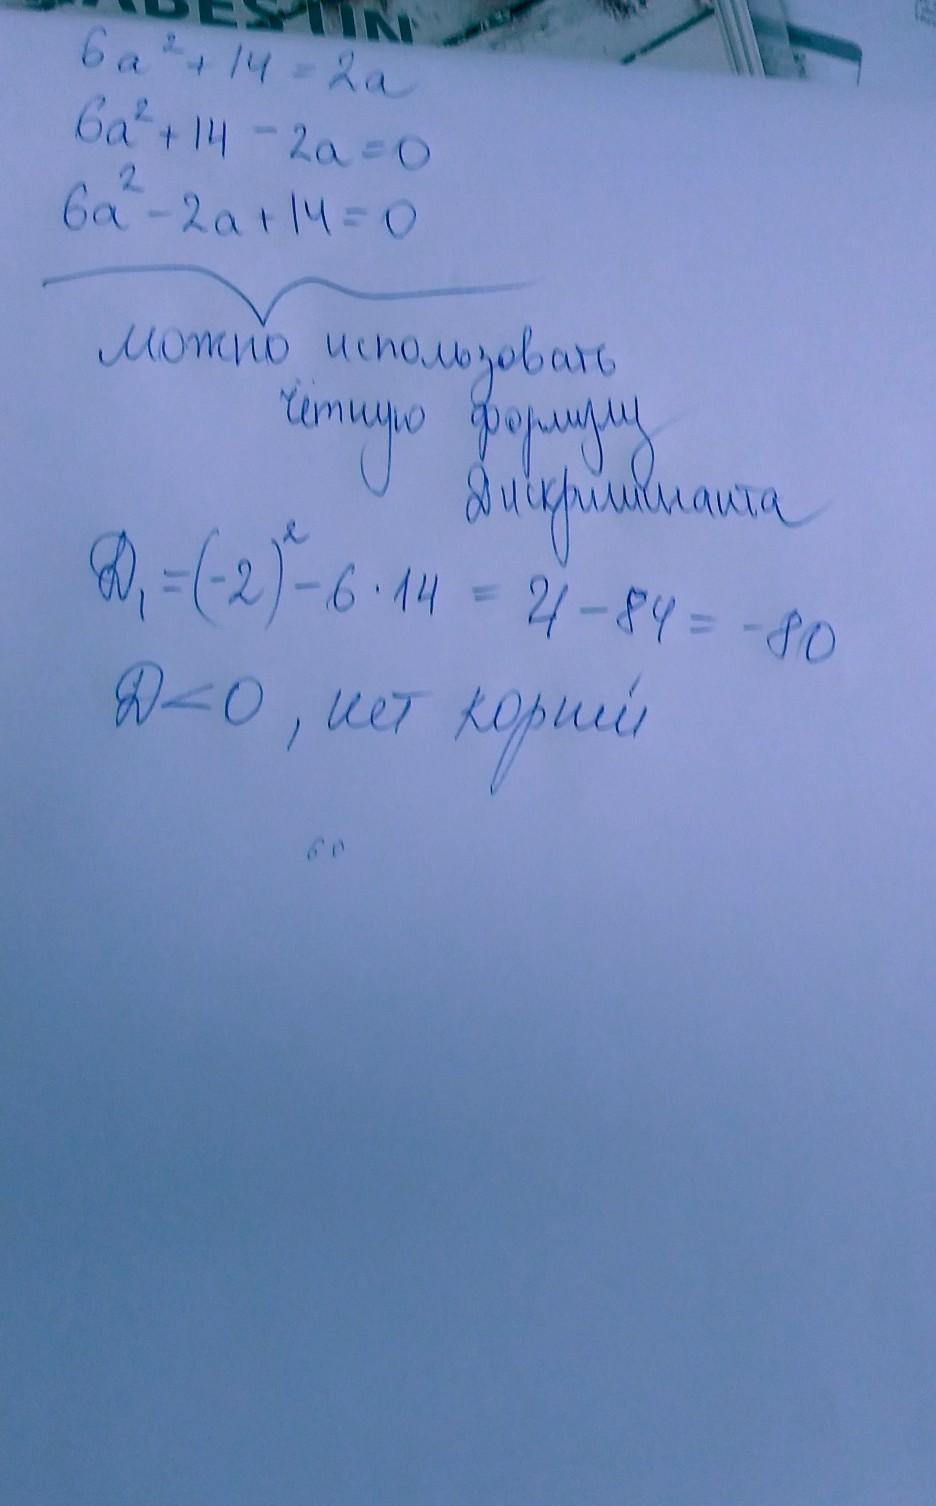 6a² + 14 = 2a
6a² + 14 - 2a = 0
6a² - 2a + 14 = 0
можно использовать
чётную формулу
Дискриминанта
Д₁ = (-2)² - 6 · 14 = 4 - 84 = -80
Д < 0, нет корней